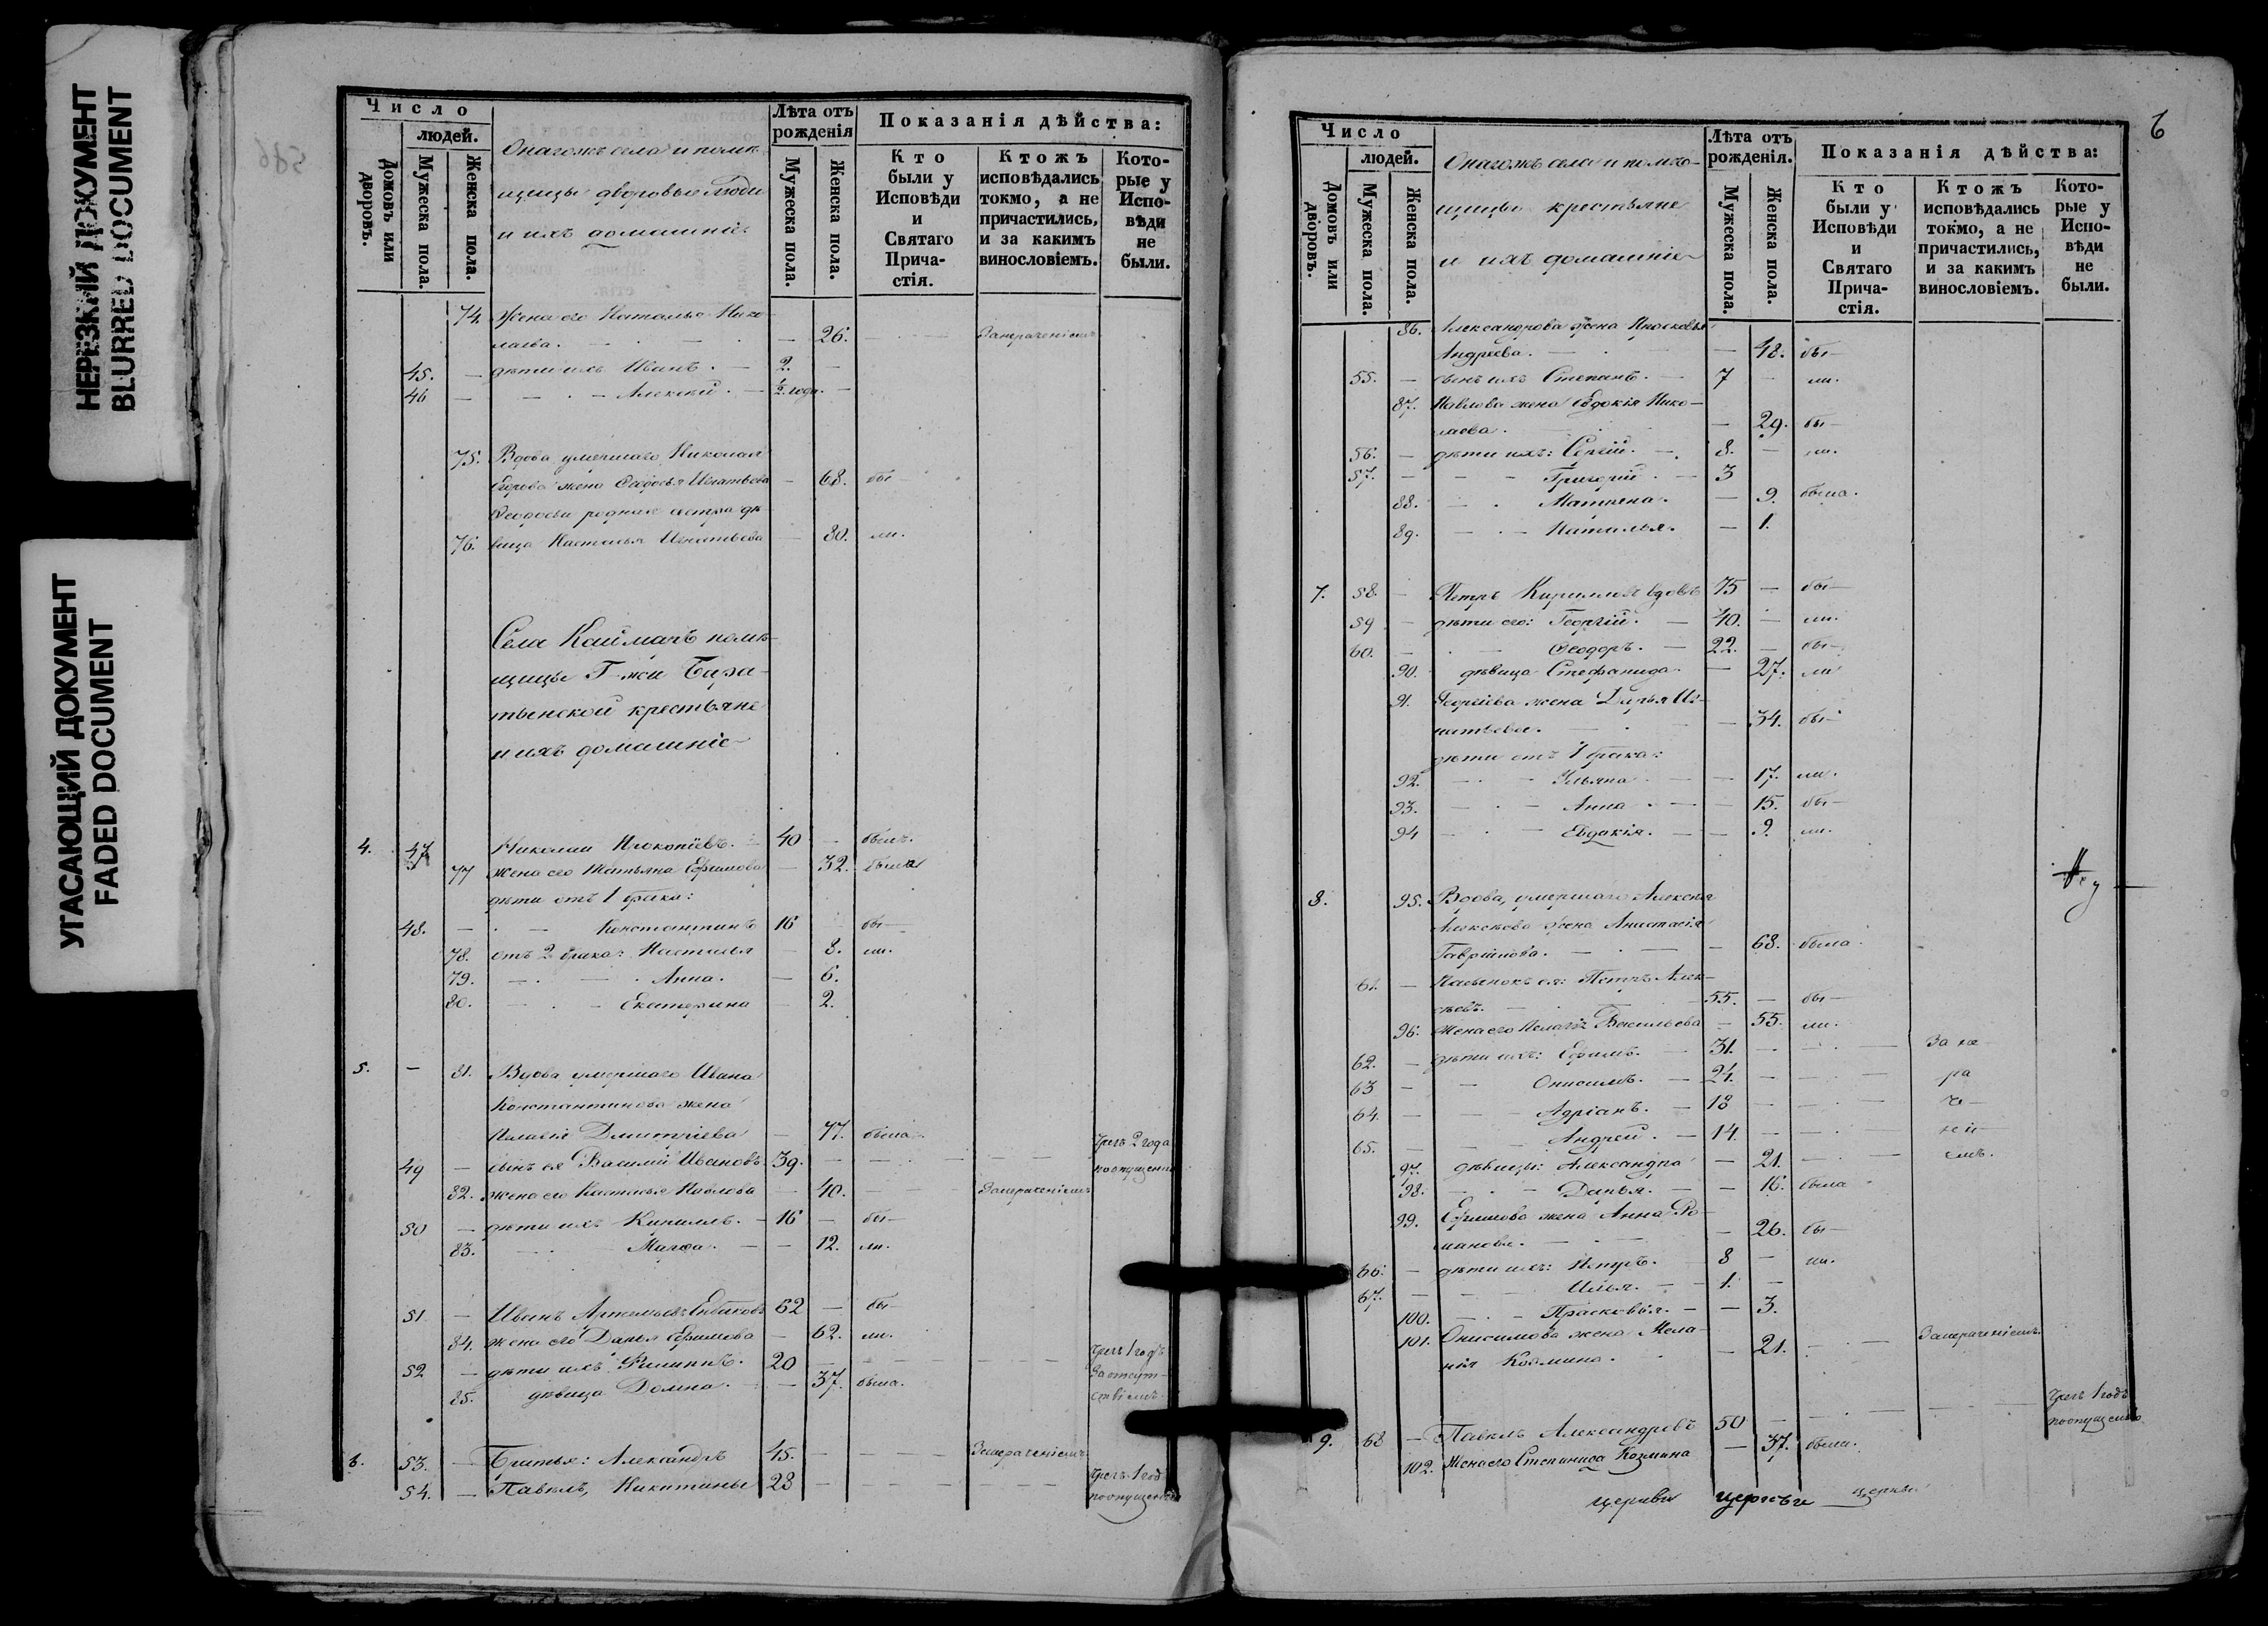 НЕРЕЗКИЙ ДОКУМЕНТ
BLURRED DOCUMENT
УГАСАЮЩИЙ ДОКУМЕНТ
FADED DOCUMENT
Число
людей.
Домовъ или дворовъ.
Мужеска пола.
Женска пола.
Онагожъ села и помѣ-
щицы дворовые люди
и ихъ домашніе
Лѣта отъ рожденія
Мужеска пола.
Женска пола.
Показанія дѣйства:
Кто были у Исповѣди и Святаго Прича-стія.
Ктожъ исповѣдались токмо, а не причастились, и за какимъ винословіемъ.
Кото-рые у Испо-вѣди не были.
74. Жена его Наталья Нико-
лаева. — 26. — Замраченіемъ
45. — дѣти ихъ Иванъ. — 2. —
46 — Алексѣй. — 1/2 года. —
75. Вдова умершаго Николая
Егорова жена Ѳеодосья Игнатьева — 68. бы—
Ѳеодосьи родная сестра дѣ-
76. вица Настасья Игнатьева — 80. ли.
Села Каймачъ помѣ-
щицы Г-жи Бара-
тынской крестьяне
и ихъ домашніе
4. 47 Николай Прокопіевъ. 40 — былъ.
77 жена его Татьяна Ефимова — 32. была
дѣти отъ 1 брака:
48. — Константинъ 16 бы—
78. отъ 2 брака: Настасья — 8. ли.
79. — Анна. — 6.
80. — Екатерина — 2.
5. — 81. Вдова умершаго Ивана
Константинова жена
Пелагія Дмитріева — 77. была
49 — сынъ ея Василій Ивановъ 39. — чрезъ 2 года по опущенію
82. жена его Наталья Павлова — 40. — Замраченіемъ
50 — дѣти ихъ Кириллъ. — 16 — бы—
83. — Марѳа. — — 12. ли.
51 — Иванъ Артемьевъ 62 — бы—
84. жена его Дарья Ефимова — 62. ли.
52 — дѣти ихъ Филиппъ. 20 — чрезъ 1 годъ За отсут-ствіемъ
85. дѣвица Домна. — 37. была.
6. 53. — Братья: Александръ 45. — Замраченіемъ
54. — Павелъ, Никитины 28 — чрезъ 1 годъ по опущенію
6
Число
людей.
Домовъ или дворовъ.
Мужеска пола.
Женска пола.
Онагожъ села и помѣ-
щицы крестьяне
и ихъ домашніе
Лѣта отъ рожденія.
Мужеска пола.
Женска пола.
Показанія дѣйства:
Кто были у Исповѣди и Святаго Прича-стія.
Ктожъ исповѣдались токмо, а не причастились, и за какимъ винословіемъ.
Кото-рые у Испо-вѣди не были.
86. Александрова жена Прасковья
Андреева. — 48. бы—
55. — сынъ ихъ Степанъ. — 7 — ли.
87. Павлова жена Евдокія Нико-
лаева. — 29. бы—
56. — дѣти ихъ: Сергій. — 8. — ли.
57. — Григорій. — 3
88. — Матрена. — 9. была.
89. — Наталья. — 1.
7. 58. — Петръ Кирилловъ вдовъ 75 — бы—
59 — дѣти его: Георгій. — 40. — ли.
60. — Ѳеодоръ. — 22. — бы—
90. дѣвица Стефанида — 27. ли
91. Георгіева жена Дарья Иг-
натьева. — 34. бы—
дѣти отъ 1 брака:
92. — Ульяна — 17. ли.
93. — Анна — 15. бы—
94 — Евдокія. — 9. ли.
8. 95. Вдова, умершаго Алексѣя
Алексѣева жена Анастасія
Гавріилова. — 68. была
61. — Пасынокъ ея: Петръ Алек-
сѣевъ. — 55. — бы—
96. жена его Пелагія Васильева — 55. ли.
62. — дѣти ихъ: Ефимъ. — 31. — За ха-
63 — Онисимъ. — 24. — ра
64. — Адріанъ. — 18 — че—
65. — Андрей. — 14. — ній
97. дѣвицы: Александра — 21. — емъ.
98. — Дарья. — 16. была
99. Ефимова жена Анна Ро-
манова. — 26. бы—
66. — дѣти ихъ: Петръ. 8 — ли.
67. — Илья. — 1. —
100. — Прасковья. — 3.
101. Онисимова жена Мела-
нія Козмина. — 21. — Замраченіемъ
9. 68 — Павелъ Александровъ 50 — чрезъ 1 годъ по опущенію
102. Жена его Степанида Козмина — 37. была.
церкви церкви церкви